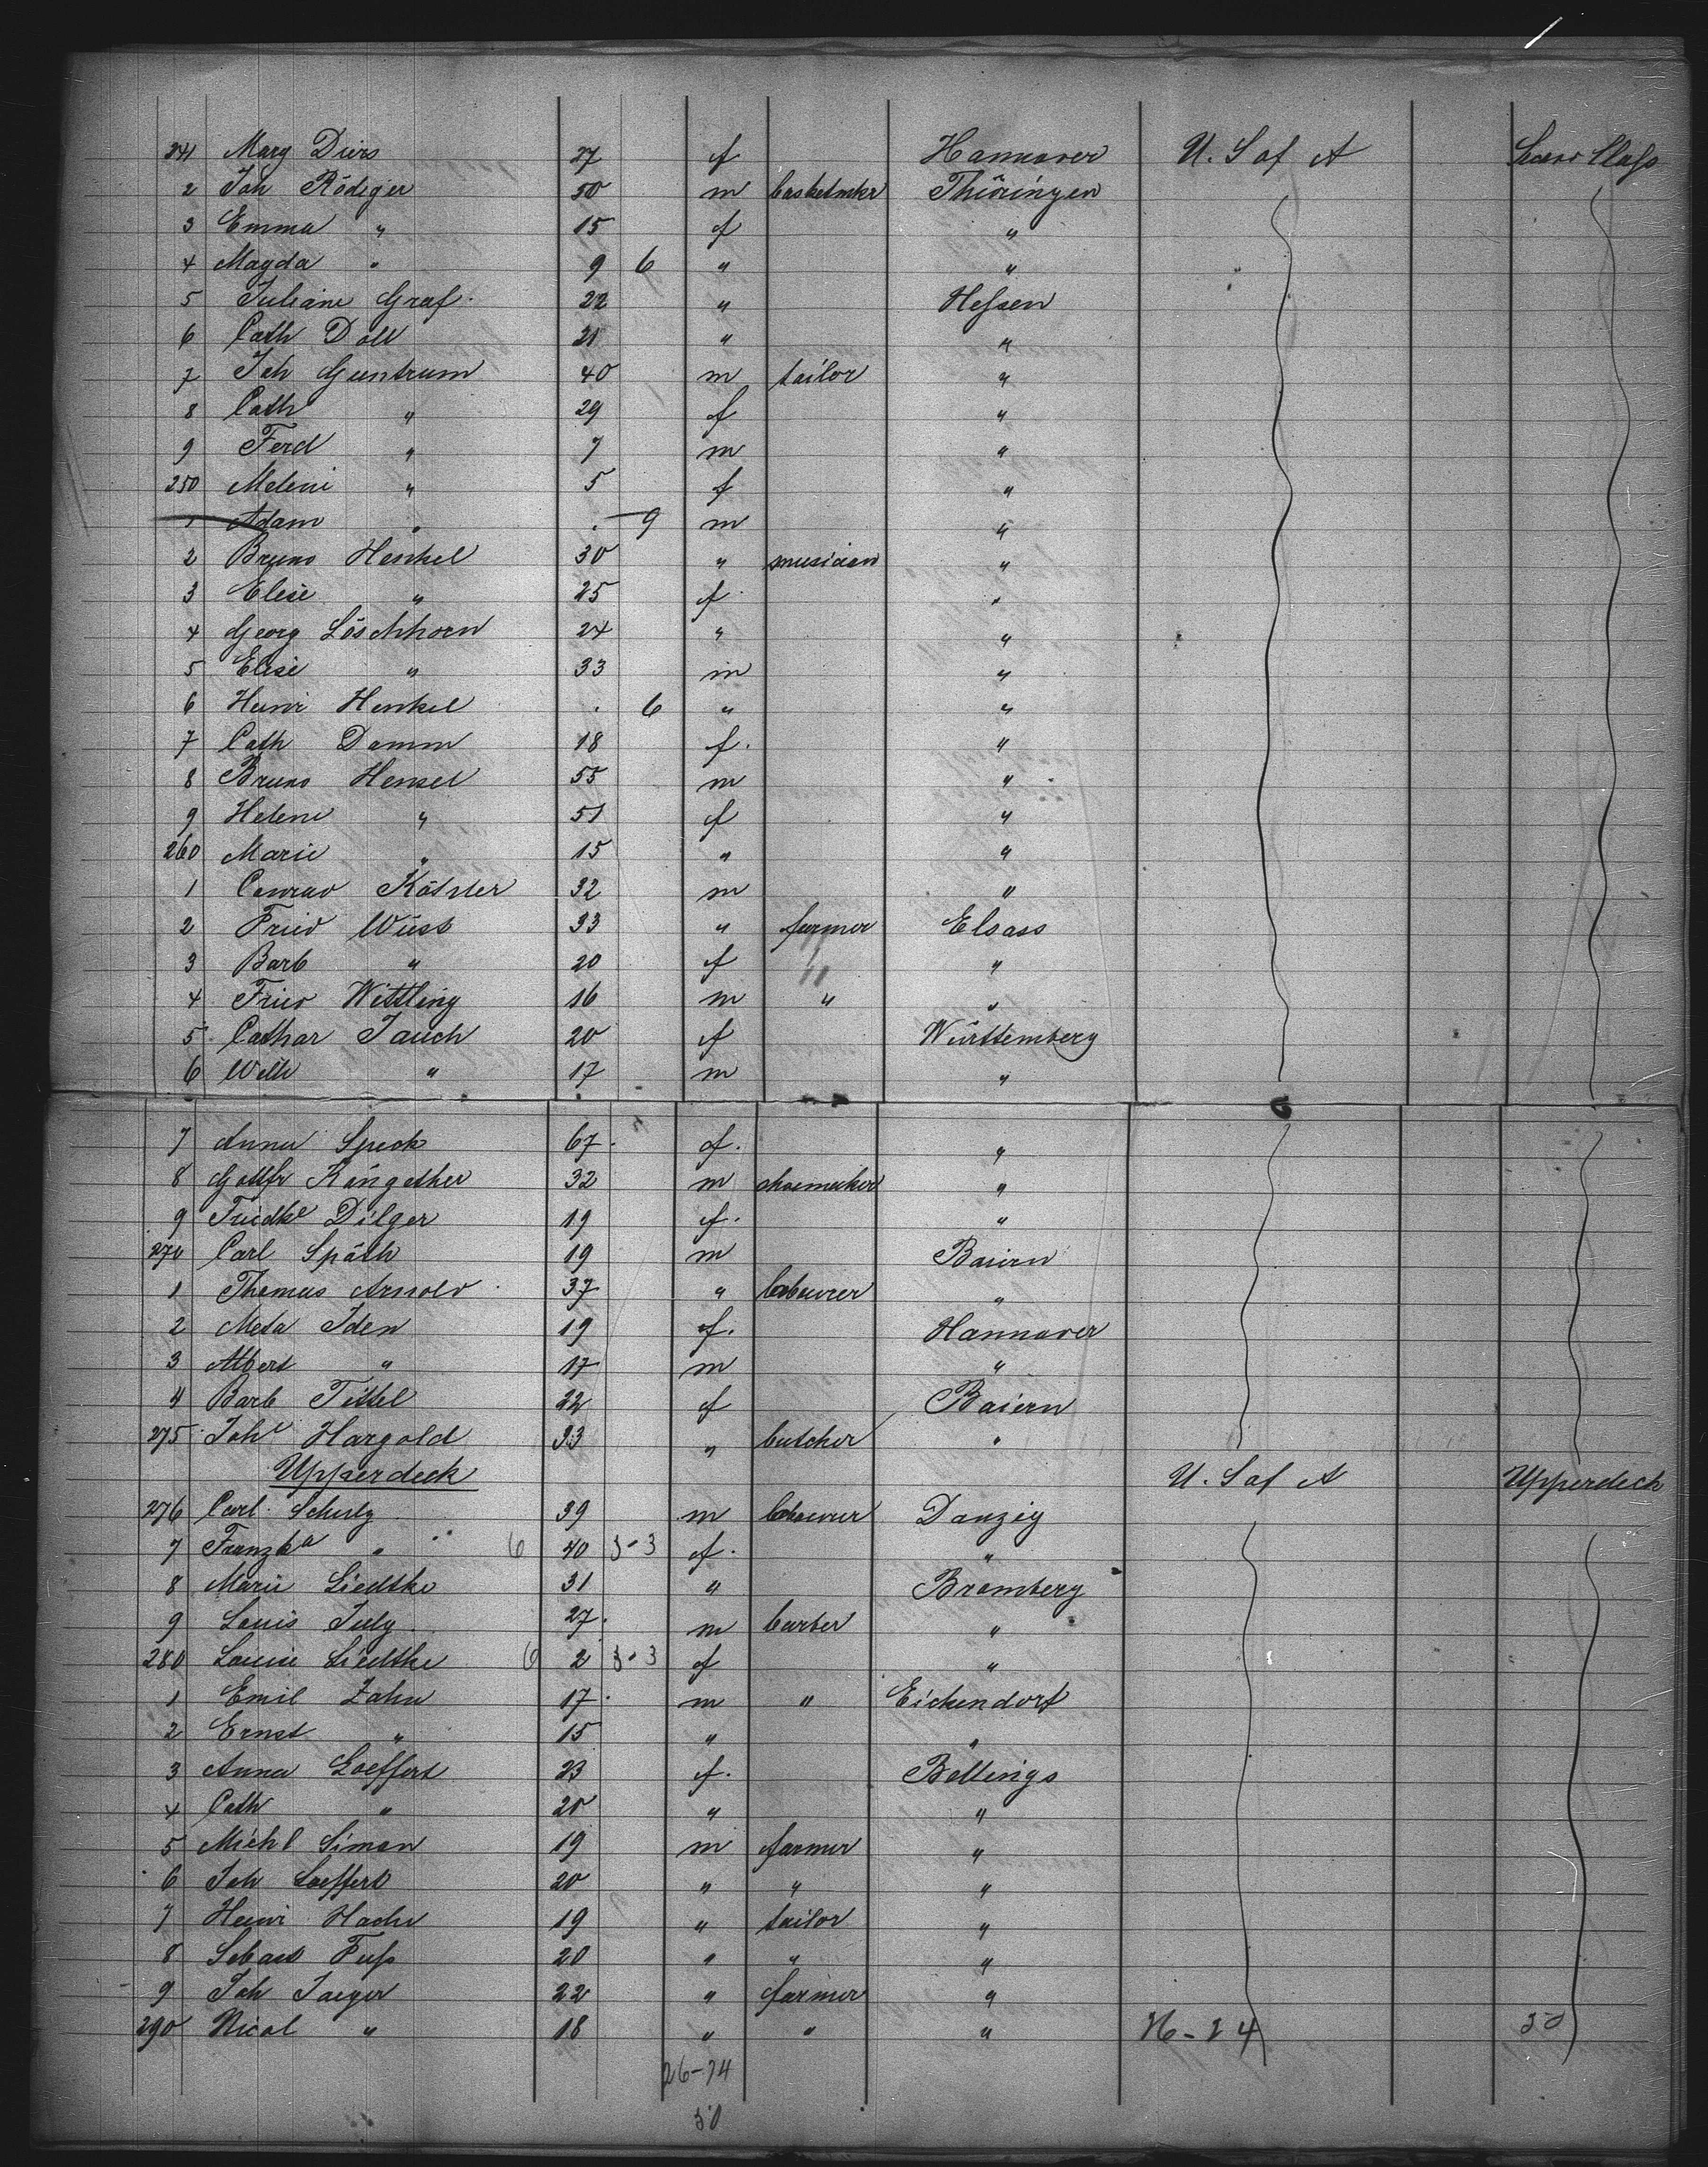 241 Mary Diers 27 f Hannover U. S of A
2 Joh Rödiger 50 m basketmkr Thüringen
3 Emma " 15 f "
4 Magda " 9 6 " "
5 Juliane Graf 22 " Hessen
6 Cath Doll 21 " "
7 Joh Guntrum 40 m tailor "
8 Cath " 29 f "
9 Ferd " 7 m "
250 Meleni " 5 f "
1 Adam " . 9 m "
2 Bruno Henkel 30 " musician "
3 Elise " 25 f "
4 Georg Löschhorn 24 " "
5 Elise " 33 m "
6 Heinr Henkel . 6 " "
7 Cath Damm 18 f. "
8 Bruno Hensel 55 m "
9 Helene " 51 f "
260 Marie " 15 " "
1 Conrad 32 m "
2 Fried Wüst 33 " farmer Elsass
3 Barb " 20 f " "
4 Fried Wittling 16 m " "
5 Cathar Jauch 20 f Württemberg
6 Wilh " 17 m "
7 Anna Speck 67 f. "
8 Gottfr 32 m shoemaker "
9 Friedke Dilger 19 f. "
270 Carl Späth 19 m Baiern
1 Thomas Arnold 37 " labourer "
2 Meta Iden 19 f. Hannover
3 Albert " 17 m "
4 Barb Tittel 22 f Baiern
275 Joh Hargold 33 " butcher "
Upperdeck U. S of A Upperdeck
276 Carl Schulz 39 m labourer Danzig
7 Franzka " 6 40 3-3 f. "
8 Marie Liedtke 31 " Bromberg
9 Louis July 27 m barber "
280 Louise Liedtke 6 2 3-3 f "
1 Emil Zahn 17 m " Eickendorf
2 Ernst " 15 " "
3 Anna Loeffert 23 f. Bollings
4 Cath " 20 " "
5 Michl Simon 19 m farmer "
6 Joh Loeffert 20 " " "
7 Heinr 19 " tailor "
8 Sebast Fuss 20 " " "
9 Joh Jaeger 22 " farmer "
290 Nicol " 18 " " " 26-24 50
26-24
50